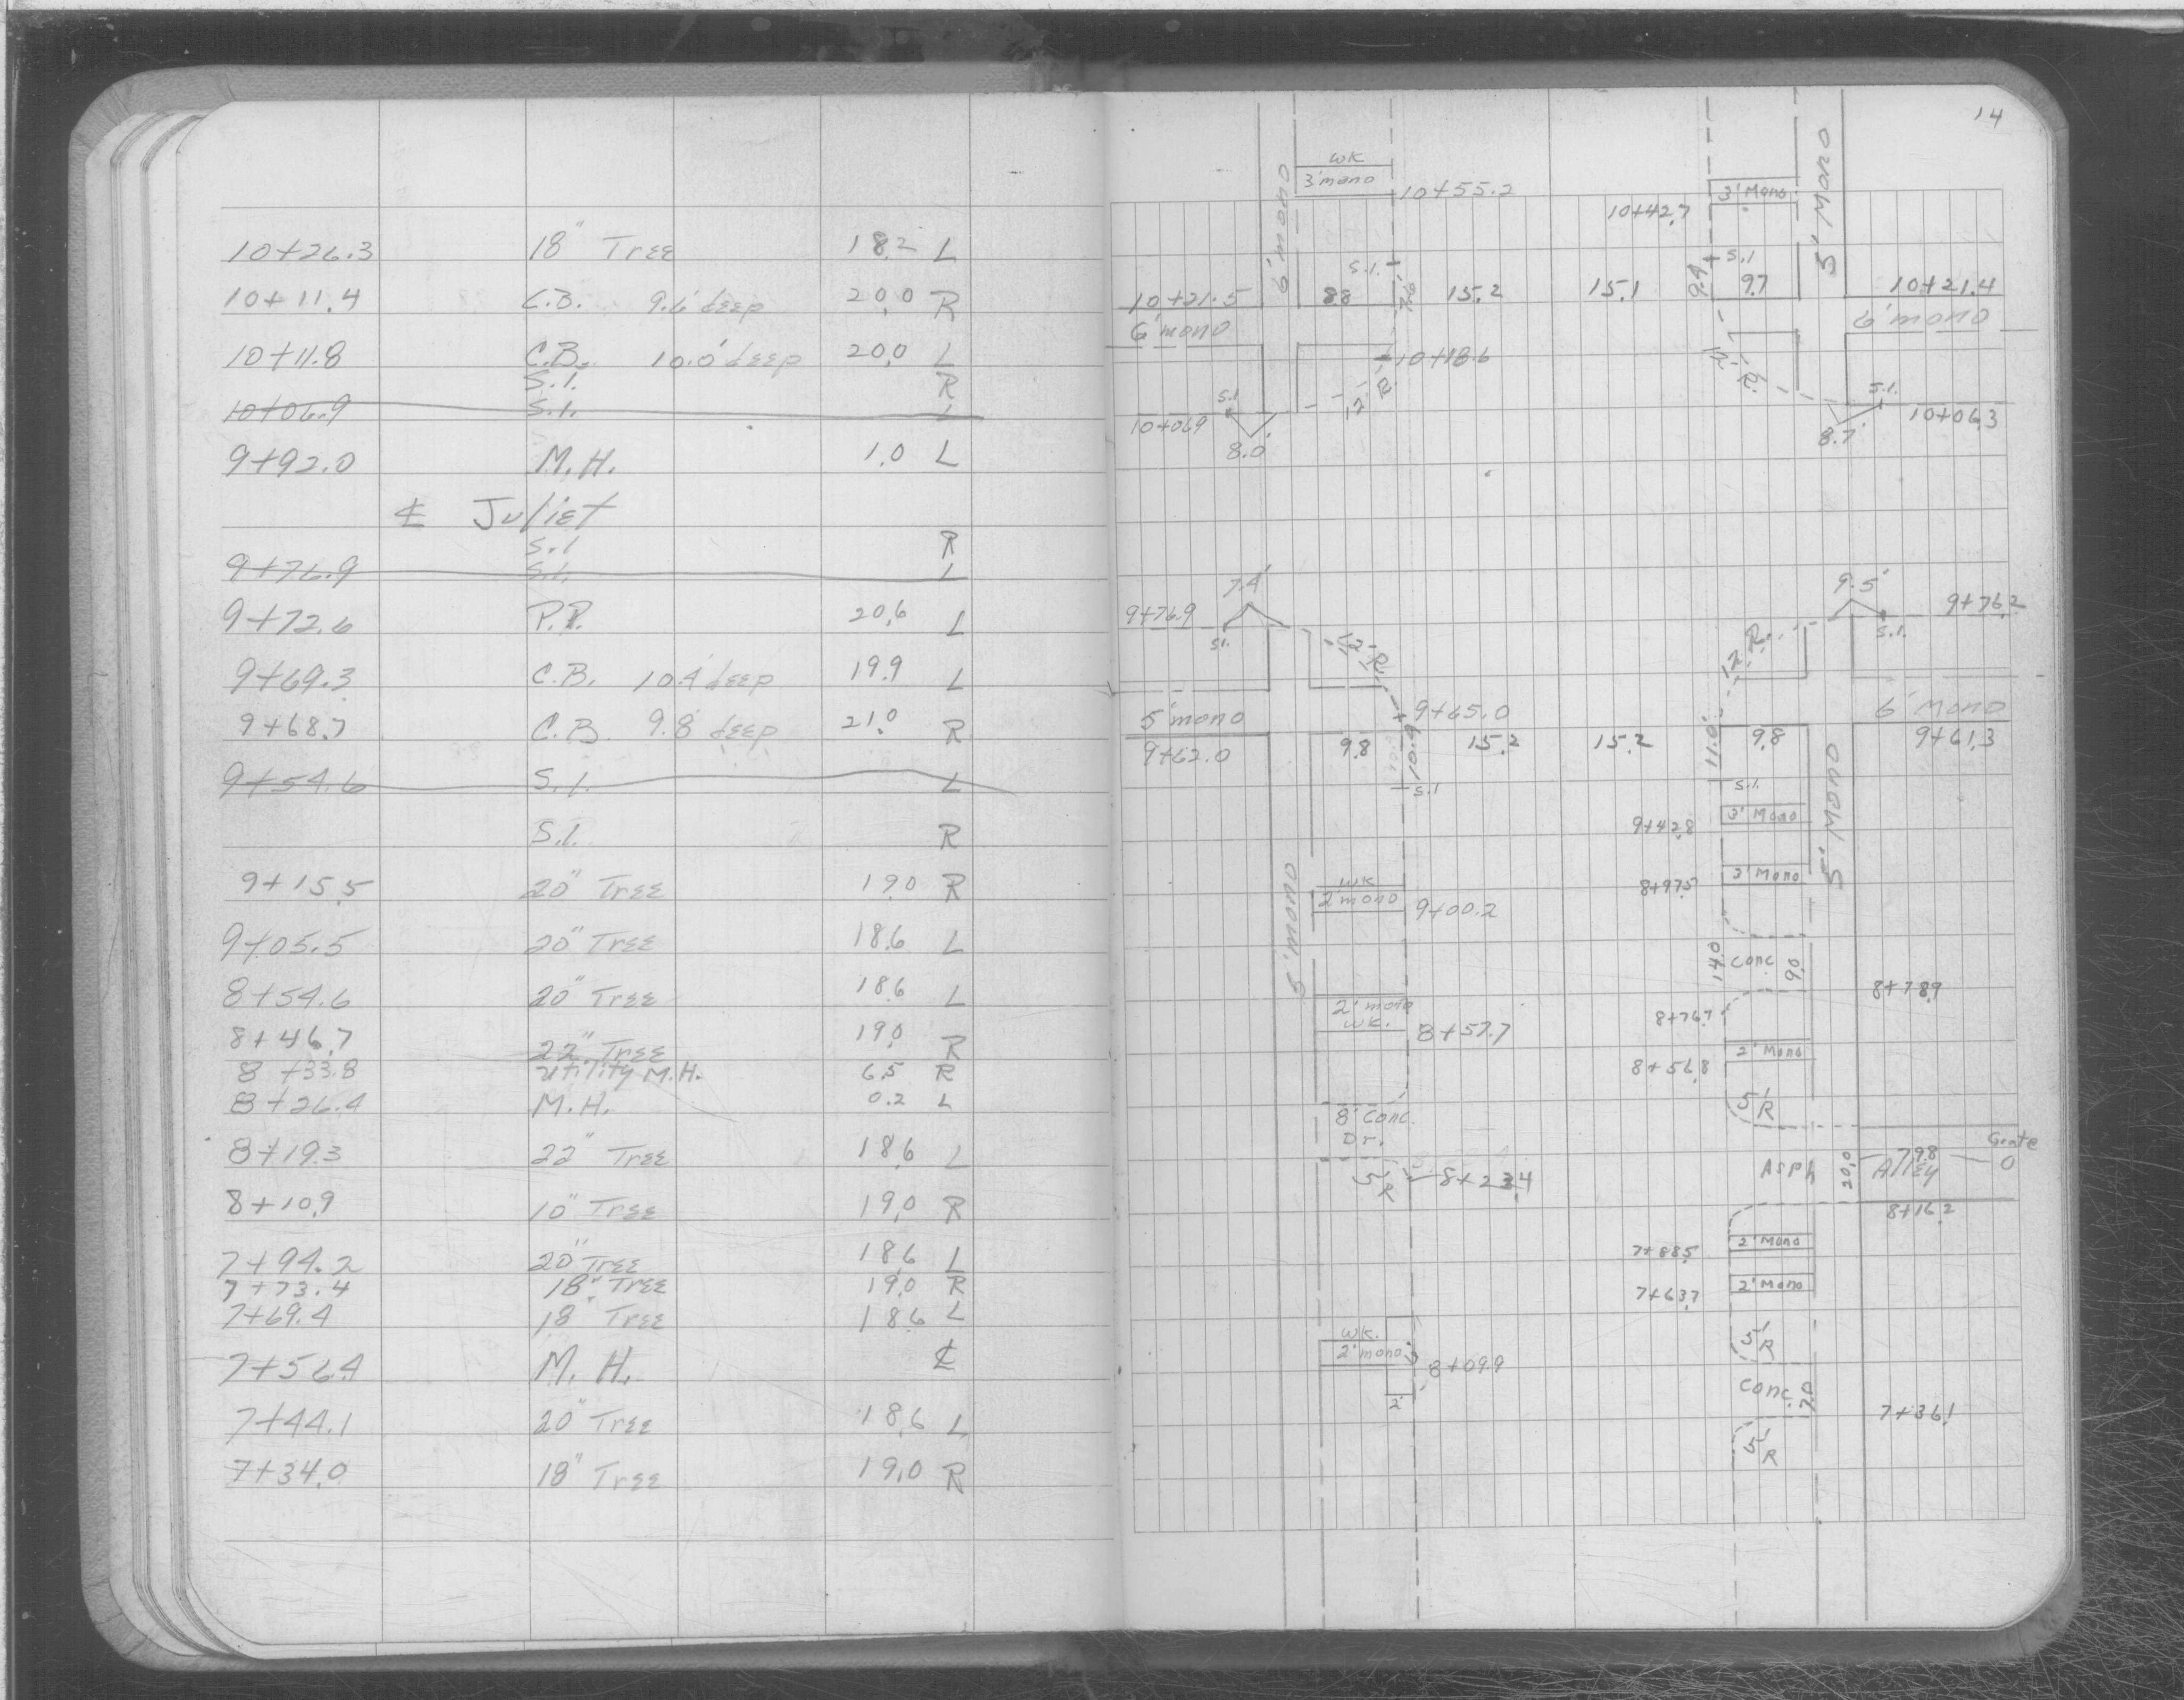 10+26.3 18" Tree 18.2 L
10+11.4 C.B. 9.6' deep 20.0 R
10+11.8 C.B. 10.0' deep 20.0 L
S.I. R
10+06.9 S.I. L
9+92.0 M.H. 1.0 L
℄ Juliet
S.I R
9+76.9 S.I. L
9+72.6 P.P. 20.6 L
9+69.3 C.B. 10.4' deep 19.9 L
9+68.7 C.B. 9.8' deep 21.0 R
9+54.6 S.I. L
S.I. R
9+15.5 20" Tree 19.0 R
9+05.5 20" Tree 18.6 L
8+54.6 20" Tree 18.6 L
8+46.7 22" Tree 19.0 R
8+33.8 Utility M.H. 6.5 R
8+26.4 M.H. 0.2 L
8+19.3 22" Tree 18.6 L
8+10.9 10" Tree 19.0 R
7+94.2 20" Tree 18.6 L
7+73.4 18" Tree 19.0 R
7+69.4 18" Tree 18.6 L
7+56.4 M.H. ℄
7+44.1 20" Tree 18.6 L
7+34.0 18" Tree 19.0 R
14
WK
3' mono 10+55.2
3' Mono
10+42.7
6' mono
5' Mono
S.I. S.I
10+21.5 8.8 7.6 15.2 15.1 9.4 9.7 10+21.4
6' mono 6' mono
10+18.6
S.I S.I.
10+06.9 12' R 10+06.3
8.0 8.7'
7.4' 9.5'
9+76.9 9+76.2
S.I. S.I.
12' R 12' R
9+65.0
5' mono 6' Mono
9+62.0 9.8 10.9 15.2 15.2 11.0 9.8 9+61.3
S.I S.I.
3' Mono
9+42.8
5' Mono
2' Mono
8+97.5
WK
2' mono 9+00.2
5' mono
14.0 Conc 9.0
8+78.9
2' mono
WK. 8+57.7
8+76.7
2' Mono
8+56.8
5' R
8' Conc.
Dr.
5' R
8+23.4
Asph 20.0 79.8 Grate
Alley
8+16.2
2' Mono
7+88.5
2' Mono
7+63.7
WK.
2' mono 8+09.9
2'
5' R
Conc. 7.0
7+36.1
5' R